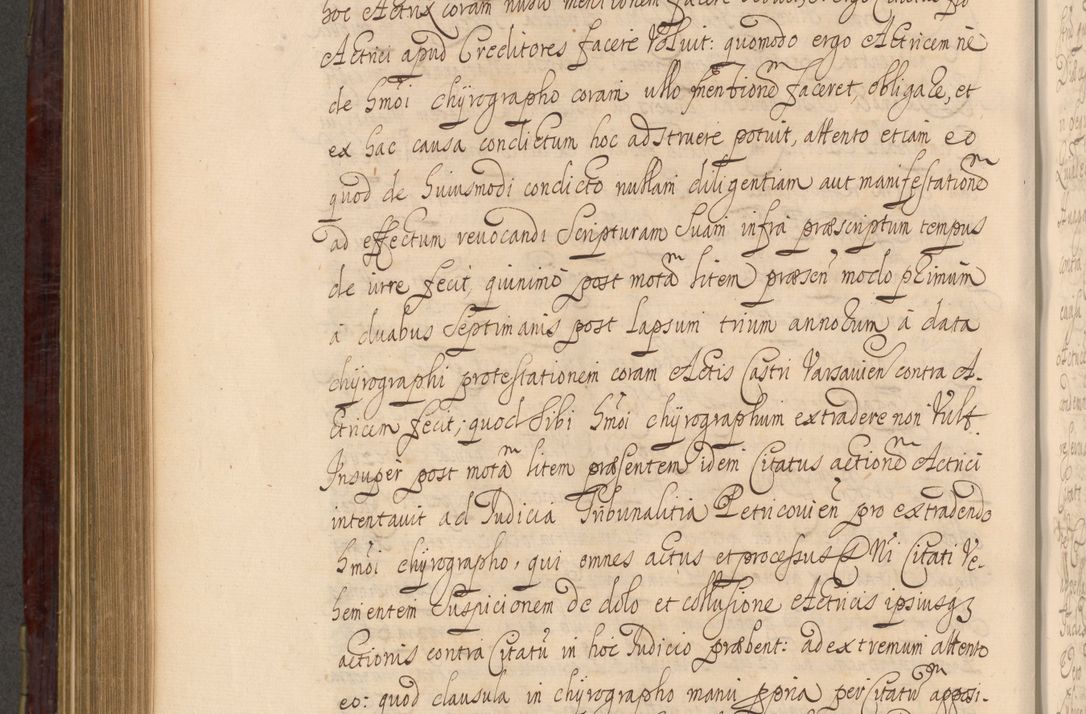 hoc Actrix coram nullo mentionem facere
Actrici apud Creditores facere Voluit: quomodo ergo Actricem né
de hmõi chÿrographo coram ullo mentionẽ faceret, obligare, et
ex hac causa condictum hoc adstruere potuit, attento etiam eo
quod de huiusmodi condicto nullam diligentiam aut manifestationẽ
ad effectum reuocandi Scripturam Suam infra præscriptum tempus
de iure fecit, quinimò post motã litem præsen̄ modo primum
à duabus Septimanis post Lapsum trium annorum à data
chÿrographi protestationem coram Actis Castri Varsauien̄ contra A-
ctricem fecit; quod Sibi hmõi chÿrographum extradere non Vult
Insuper post motã litem præsentem idem Citatus actionẽ Actrici
intentauit ad Judicia Tribunalitia Petricouien̄ pro extradendo
hmõi chÿrographo, qui omnes actus et processus Citati Ve-
hementem Suspicionem de dolo et collusione Actricis ipsiusq3
actionis contra Citatũ in hoc Judicio præbent: ad extremum attento
eo: quod clausula in chÿrographo manu ppria per Citatũ apposi-